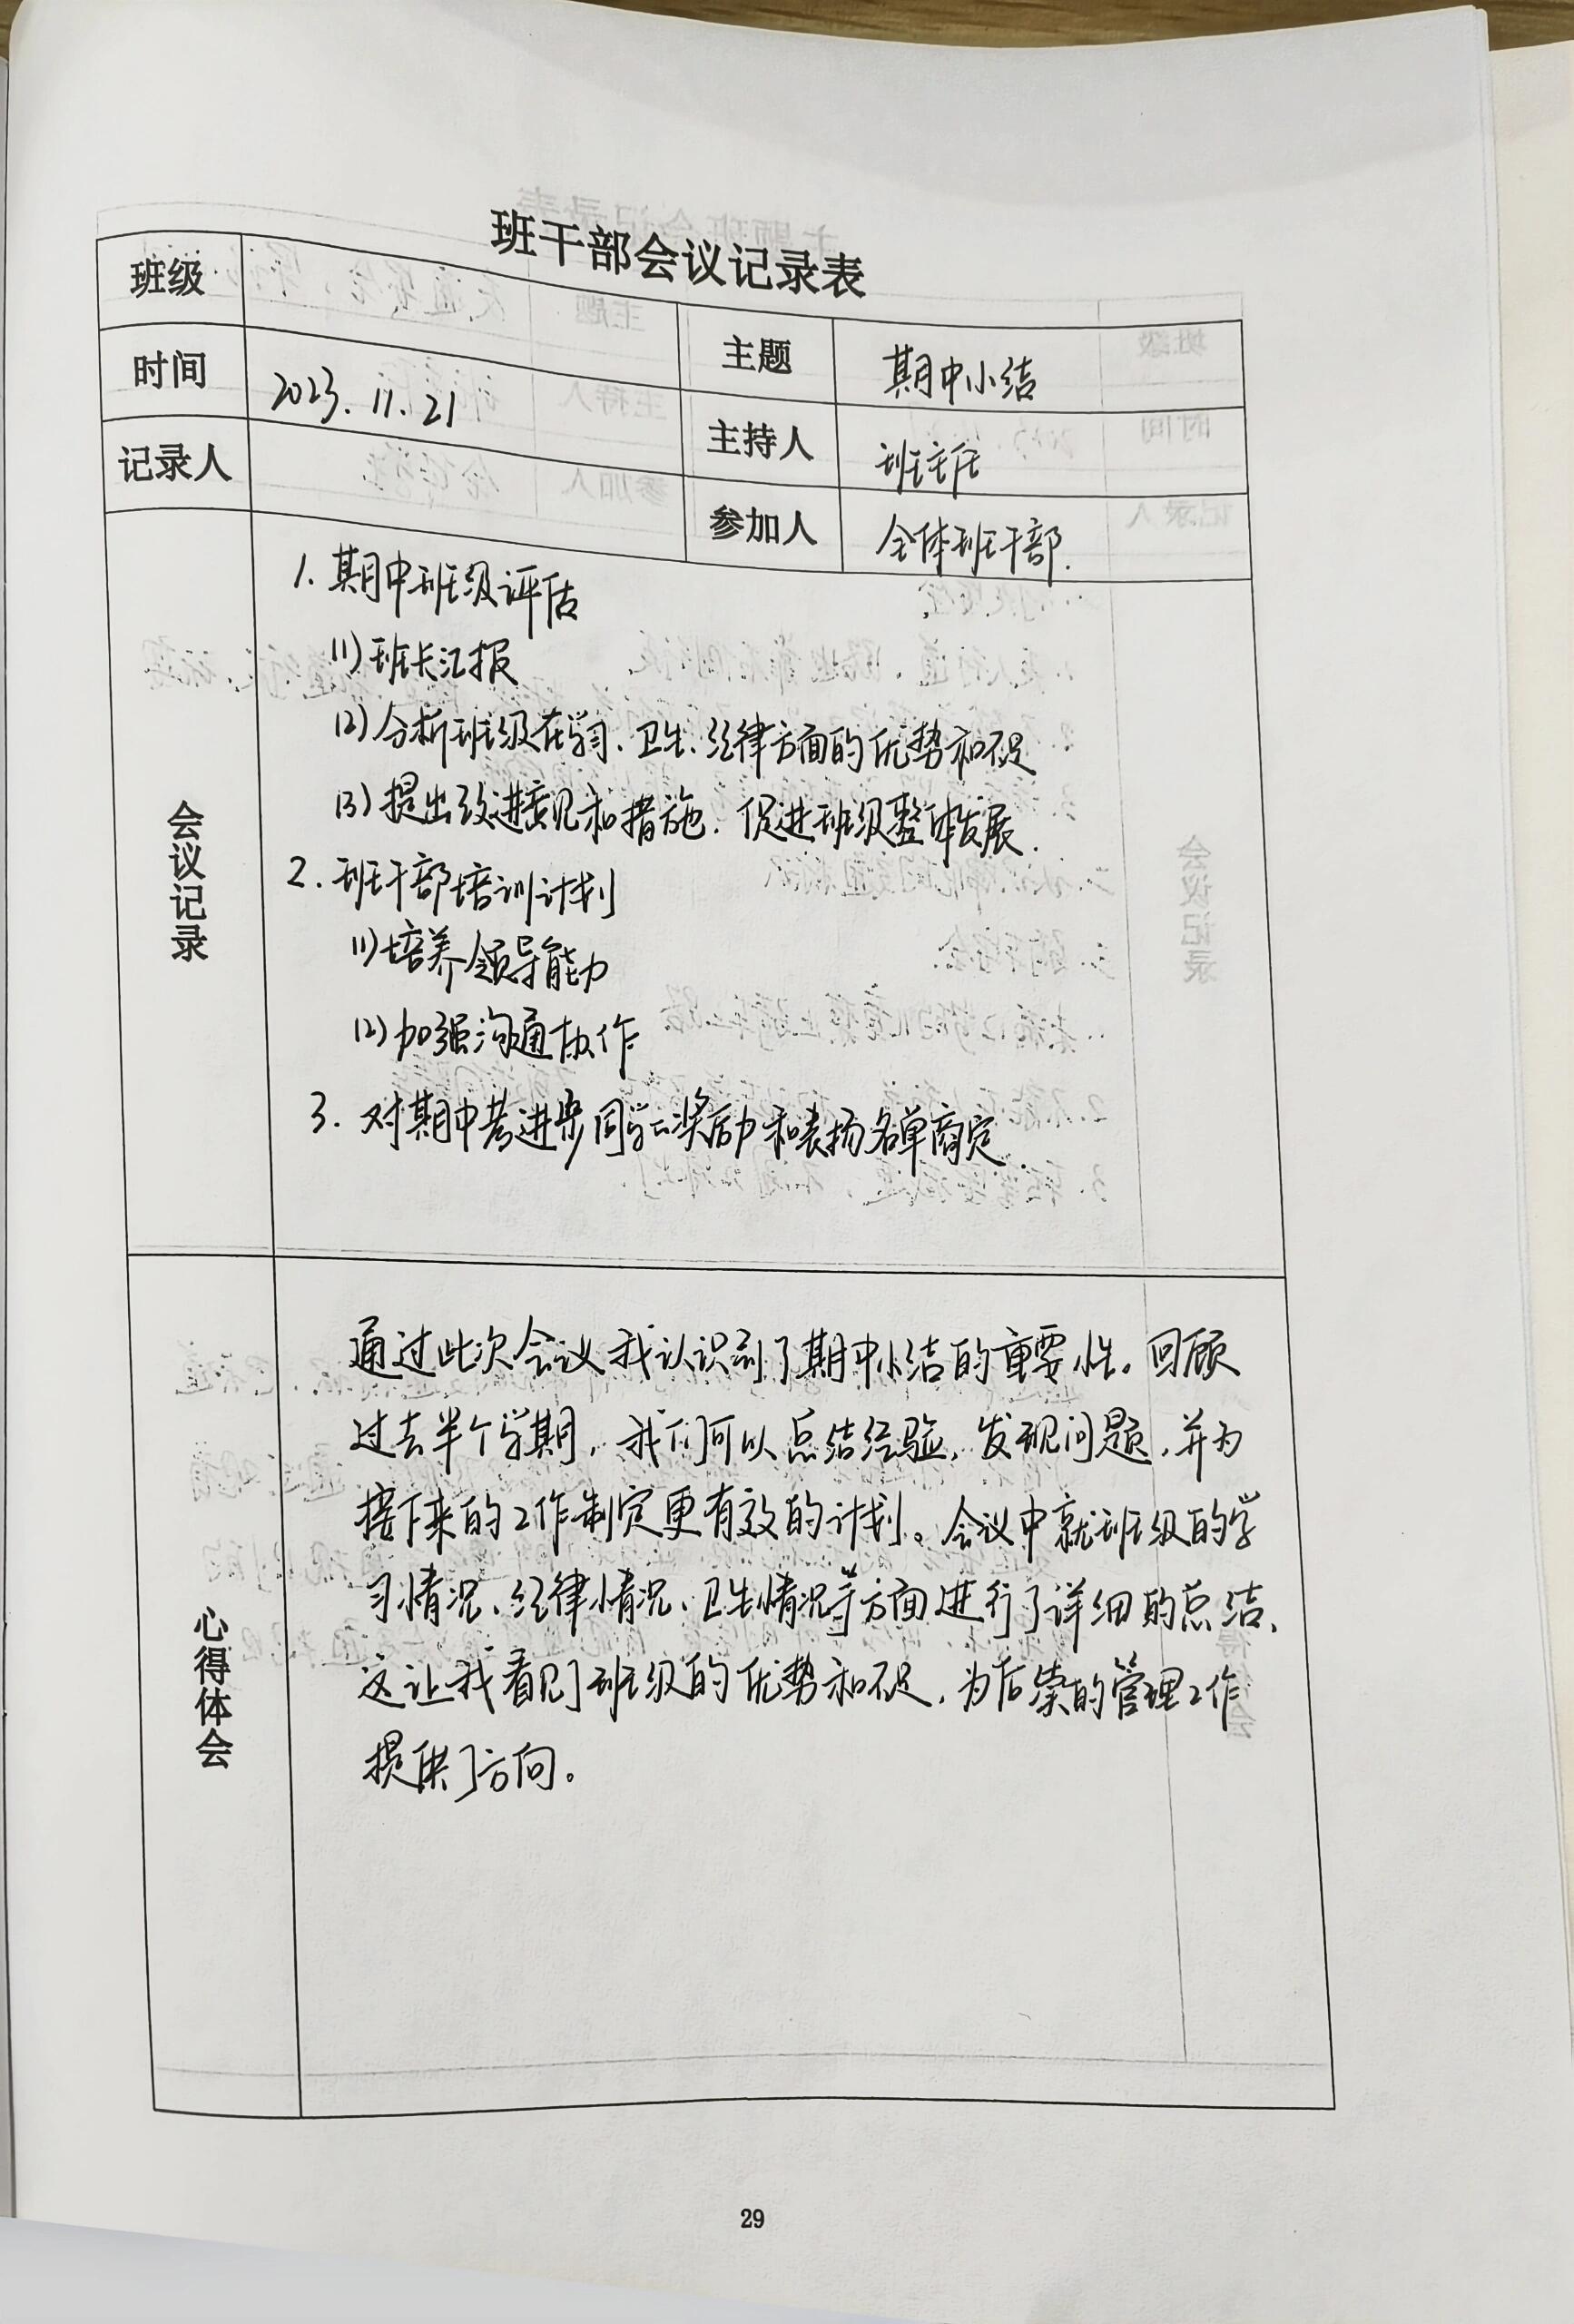 班干部会议记录表
班级
时间 2023.11.21 主题 期中小结
记录人 主持人 班主任
参加人 全体班干部.
会议记录
1. 期中班级评估
(1) 班长汇报
(2) 分析班级在学习、卫生、纪律方面的优势和不足
(3) 提出改进意见和措施. 促进班级整体发展.
2. 班干部培训计划
(1) 培养领导能力
(2) 加强沟通协作
3. 对期中考进步同学奖励和表扬名单商定.
心得体会
通过此次会议我认识到了期中小结的重要性。回顾
过去半个学期, 我们可以总结经验, 发现问题, 并为
接下来的工作制定更有效的计划。会议中就班级的学
习情况、纪律情况、卫生情况等方面进行了详细的总结、
这让我看见了班级的优势和不足, 为后续的管理工作
提供了方向。
29